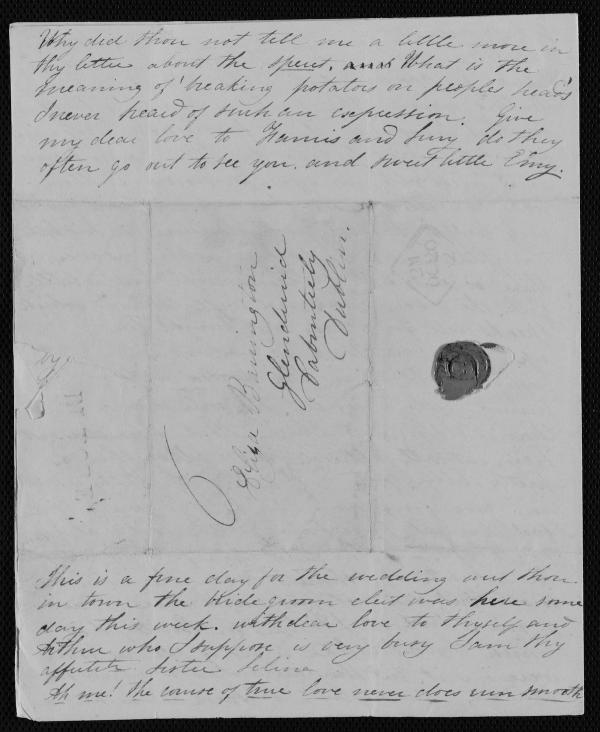 Why did thou not tell me a little more in
thy letter about the What is the
meaning of 'breaking potatoes on peoples heads'
I never heard of such an expression. Give
my dear love to and do they
often go out to see you. and sweet little Emy.
6
Eliza Barrington
Glendruid
Cabinteely
Dublin.
This is a fine day for the wedding art thou
in town the bride groom elect was here some
day this week. with dear love to thyself and
who I suppose is very busy I am thy
affectte sister Selina
Ah me! the course of true love never does run smooth